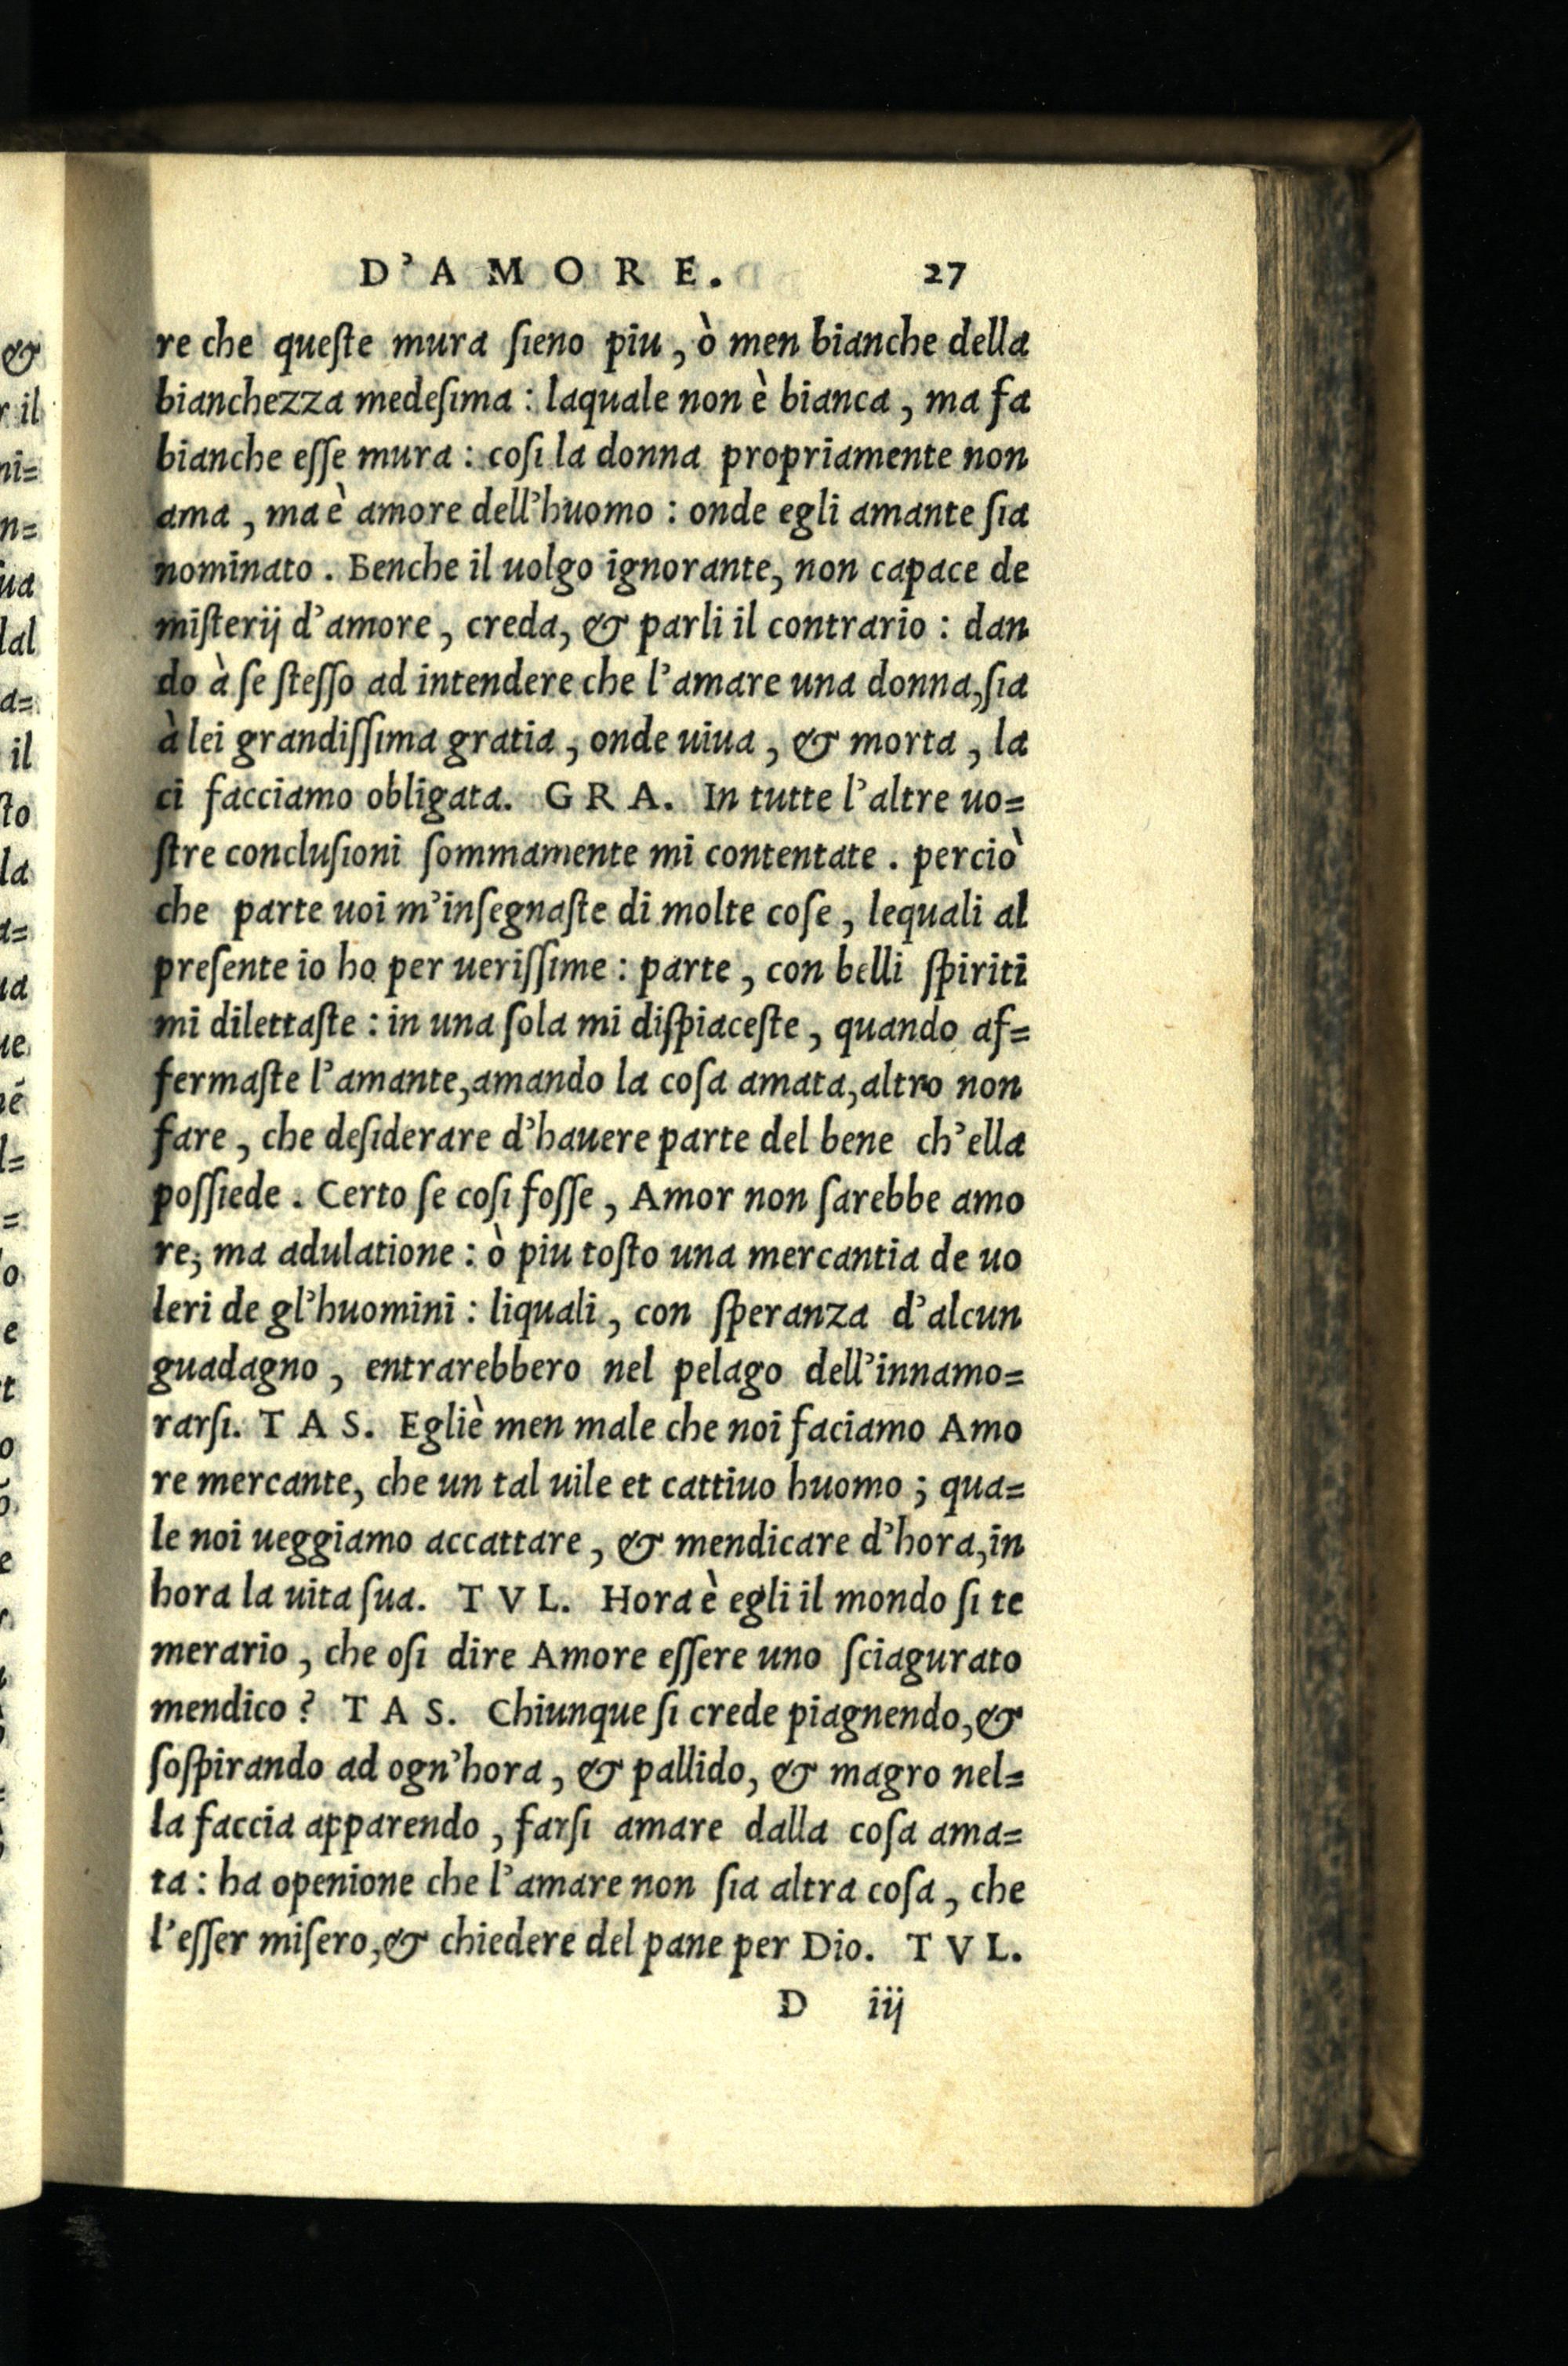 D'AMORE. 27
re che queſte mura ſieno piu, ò men bianche della
bianchezza medeſima: laquale non è bianca, ma fa
bianche eſſe mura: coſi la donna propriamente non
ama, ma è amore dell'huomo: onde egli amante ſia
nominato. Benche il uolgo ignorante, non capace de
miſterij d'amore, creda, & parli il contrario: dan
do à ſe ſteſſo ad intendere che l'amare una donna, ſia
à lei grandiſſima gratia, onde uiua, & morta, la
ci facciamo obligata. GRA. In tutte l'altre uo=
ſtre concluſioni ſommamente mi contentate. perciò
che parte uoi m'inſegnaſte di molte coſe, lequali al
preſente io ho per ueriſſime: parte, con belli ſpiriti
mi dilettaſte: in una ſola mi diſpiaceſte, quando af=
fermaſte l'amante, amando la coſa amata, altro non
fare, che deſiderare d'hauere parte del bene ch'ella
poſſiede. Certo ſe coſi foſſe, Amor non ſarebbe amo
re; ma adulatione: ò piu toſto una mercantia de uo
leri de gl'huomini: liquali, con ſperanza d'alcun
guadagno, entrarebbero nel pelago dell'innamo=
rarſi. TAS. Egliè men male che noi faciamo Amo
re mercante, che un tal uile et cattiuo huomo; qua=
le noi ueggiamo accattare, & mendicare d'hora, in
hora la uita ſua. TVL. Hora è egli il mondo ſi te
merario, che oſi dire Amore eſſere uno ſciagurato
mendico? TAS. Chiunque ſi crede piagnendo, &
ſoſpirando ad ogn'hora, & pallido, & magro nel=
la faccia apparendo, farſi amare dalla coſa ama=
ta: ha openione che l'amare non ſia altra coſa, che
l'eſſer miſero, & chiedere del pane per Dio. TVL.
D iij